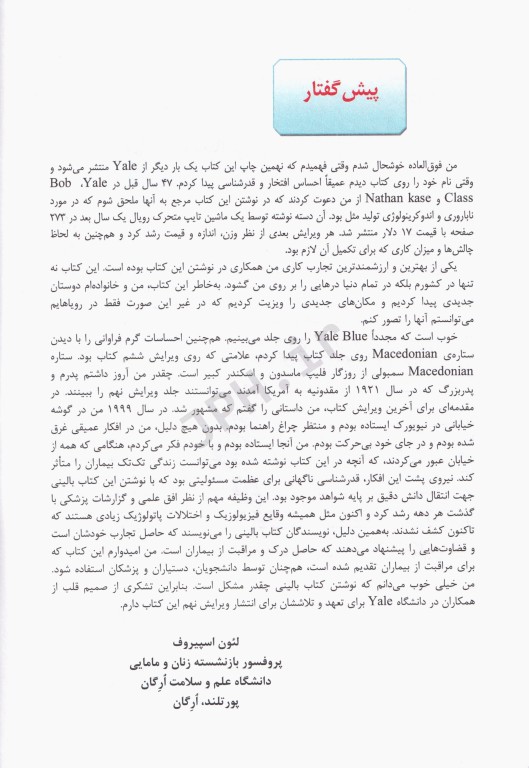 پیش گفتار
من فوق‌العاده خوشحال شدم وقتی فهمیدم که نهمین چاپ این کتاب یک بار دیگر از Yale منتشر می‌شود و
وقتی نام خود را روی کتاب دیدم عمیقاً احساس افتخار و قدرشناسی پیدا کردم. ۴۷ سال قبل در Yale، Bob
Class و Nathan kase از من دعوت کردند که در نوشتن این کتاب مرجع به آنها ملحق شوم که در مورد
ناباروری و اندوکرینولوژی تولید مثل بود. آن دسته نوشته توسط یک ماشین تایپ متحرک رویال یک سال بعد در ۲۷۳
صفحه با قیمت ۱۷ دلار منتشر شد. هر ویرایش بعدی از نظر وزن، اندازه و قیمت رشد کرد و هم‌چنین به لحاظ
چالش‌ها و میزان کاری که برای تکمیل آن لازم بود.
یکی از بهترین و ارزشمندترین تجارب کاری من همکاری در نوشتن این کتاب بوده است. این کتاب نه
تنها در کشورم بلکه در تمام دنیا درهایی را بر روی من گشود. به‌خاطر این کتاب، من و خانواده‌ام دوستان
جدیدی پیدا کردیم و مکان‌های جدیدی را ویزیت کردیم که در غیر این صورت فقط در رویاهایم
می‌توانستم آنها را تصور کنم.
خوب است که مجدداً Yale Blue را روی جلد می‌بینیم. هم‌چنین احساسات گرم فراوانی را با دیدن
ستاره‌ی Macedonian روی جلد کتاب پیدا کردم، علامتی که روی ویرایش ششم کتاب بود. ستاره
Macedonian سمبولی از روزگار فلیپ ماسدون و اسکندر کبیر است. چقدر من آروز داشتم پدرم و
پدربزرگ که در سال ۱۹۲۱ از مقدونیه به آمریکا آمدند می‌توانستند جلد ویرایش نهم را ببینند. در
مقدمه‌ای برای آخرین ویرایش کتاب، من داستانی را گفتم که مشهور شد. در سال ۱۹۹۹ من در گوشه
خیابانی در نیویورک ایستاده بودم و منتظر چراغ راهنما بودم. بدون هیچ دلیل، من در افکار عمیقی غرق
شده بودم و در جای خود بی‌حرکت بودم. من آنجا ایستاده بودم و با خودم فکر می‌کردم، هنگامی که همه از
خیابان عبور می‌کردند، که آنچه در این کتاب نوشته شده بود می‌توانست زندگی تک‌تک بیماران را متأثر
کند. نیروی پشت این افکار، قدرشناسی ناگهانی برای عظمت مسئولیتی بود که با نوشتن این کتاب بالینی
جهت انتقال دانش دقیق بر پایه شواهد موجود بود. این وظیفه مهم از نظر افق علمی و گزارشات پزشکی با
گذشت هر دهه رشد کرد و اکنون مثل همیشه وقایع فیزیولوژیک و اختلالات پاتولوژیک زیادی هستند که
تاکنون کشف نشدند. به‌همین دلیل، نویسندگان کتاب بالینی را می‌نویسند که حاصل تجارب خودشان است
و قضاوت‌هایی را پیشنهاد می‌دهند که حاصل درک و مراقبت از بیماران است. من امیدوارم این کتاب که
برای مراقبت از بیماران تقدیم شده است، هم‌چنان توسط دانشجویان، دستیاران و پزشکان استفاده شود.
من خیلی خوب می‌دانم که نوشتن کتاب بالینی چقدر مشکل است. بنابراین تشکری از صمیم قلب از
همکاران در دانشگاه Yale برای تعهد و تلاششان برای انتشار ویرایش نهم این کتاب دارم.
لئون اسپیروف
پروفسور بازنشسته زنان و مامایی
دانشگاه علم و سلامت اُرگان
پورتلند، اُرگان